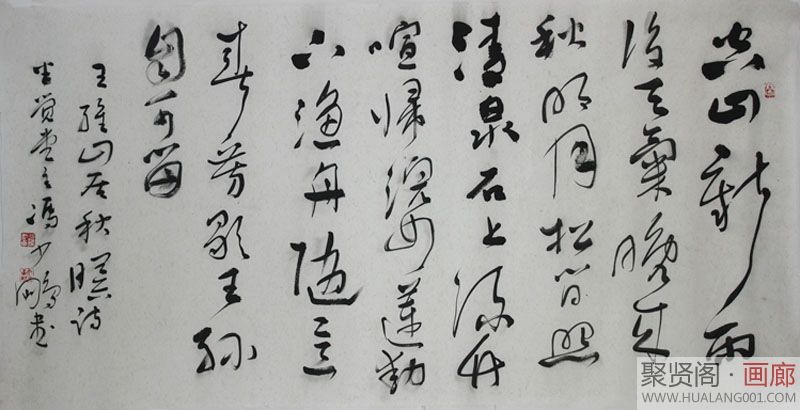 空山新雨
後天氣晚来
秋明月松间照
清泉石上流竹
喧歸浣女蓮動
下漁舟随意
春芳歇王孙
自可留
王維山居秋暝诗
觉堂主冯少鹏书
聚贤阁·画廊
WWW.HUALANG001.COM